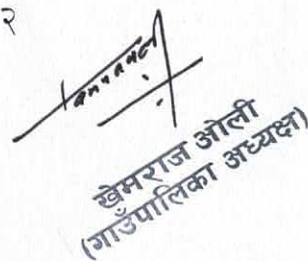 २
खेमराज ओली
(गाउँपालिका अध्यक्ष)